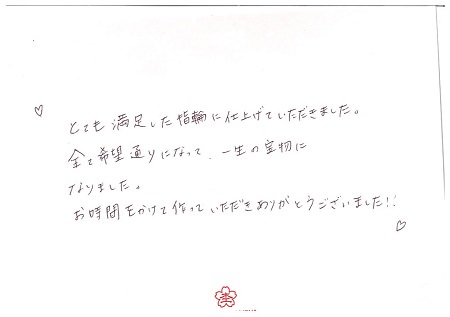 とても満足した指輪に仕上げていただきました。
全て希望通りになって、一生の宝物に
なりました。
お時間をかけて作っていただきありがとうございました!!